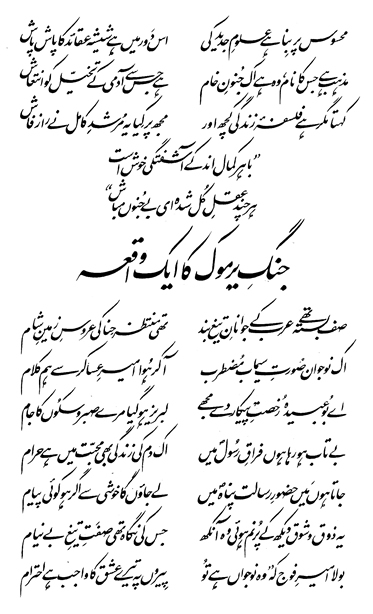 محسوس پر بنا ہے علومِ جدید کی اس دَور میں ہے شیشہ عقائد کا پاش پاش
مذہب ہے جس کا نام، وہ ہے اک جنونِ خام ہے جس سے آدمی کے تخیّل کو انتعاش
کہتا مگر ہے فلسفۂ زندگی کچھ اور مجھ پر کیا یہ مُرشدِ کامل نے راز فاش
"باہر کمال اندکے آشفتگی خوش است
ہر چند عقلِ کُل شدہ ای بے جنوں مباش"
جنگِ یرموک کا ایک واقعہ
صف بستہ تھے عرب کے جوانانِ تیغ بند تھی منتظر حنا کی عروسِ زمینِ شام
اک نوجوان صُورتِ سیماب مُضطرب آ کر ہُوا امیرِ عساکر سے ہم کلام
اے بُوعبیدہؓ رُخصتِ پیکار دے مجھے لبریز ہو گیا مرے صبر و سکُوں کا جام
بے تاب ہو رہا ہوں فراقِ رسُولؐ میں اک دم کی زندگی بھی محبّت میں ہے حرام
جاتا ہوں مَیں حضورِ رسالت پناہؐ میں لے جاؤں گا خوشی سے اگر ہو کوئی پیام
یہ ذوق و شوق دیکھ کے پُرنم ہوئی وہ آنکھ جس کی نگاہ تھی صفَتِ تیغِ بے نیام
بولا امیرِ فوج کہ "وہ نوجواں ہے تُو پِیروں پہ تیرے عشق کا واجب ہے احترام